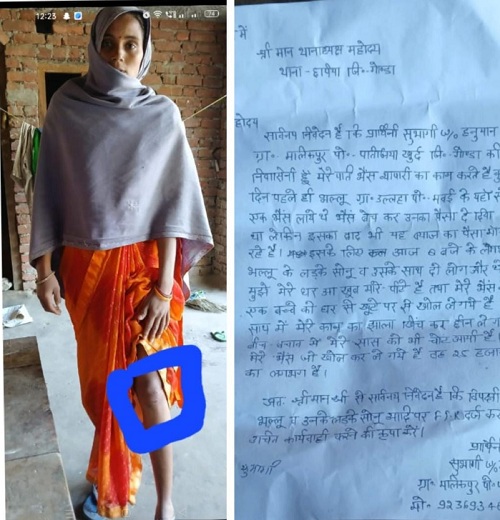 12:23
74
में
श्री मान थानाध्यक्ष महोदय
थाना - छपिया जि०- गोण्डा
होदय
सविनय निवेदन है कि प्रार्थिनी सुभागी w/o हनुमान
ग्रा० मालिकपुर पो०- पातीजिया खुर्द जि० गोण्डा की
निवासिनी हूँ मेरे पति भैंस व्यापारी का काम करते हैं
दिन पहले ही भल्लू ग्रा० पो०- के यहाँ से
एक भैंस लाये थे भैंस बेच कर उनका पैसा दे दिया
था लेकिन इसका बाद भी यह ब्याज का पैसा मांग
रहे हैं। इसके लिए आज 6 बजे के
भल्लू के लड़के सोनू व उसके साथ दो लोग और
मुझे मेरे घर आ खूब मारे पीटे हैं तथा मेरे भैंस
एक बच्चे की घर से खूंटे पर से खोल ले गये हैं
साथ में मेरे कान का झाला खींच कर छीन ले
बीच बचाव में मेरे सास को भी चोट आयी है।
मेरे भैंस जो खोल कर ले गये हैं उह 25 हजार
का है।
अतः श्रीमान जी से सविनय निवेदन है कि विपक्षी
भल्लू व उनके लड़के सोनू आदि पर F.I.R दर्ज
उचित कार्यवाही करने की कृपा करें।
प्रार्थिनी
सुभागी w/o
सुभागी
ग्रा० मालिकपुर पो०
मो०- 9236934